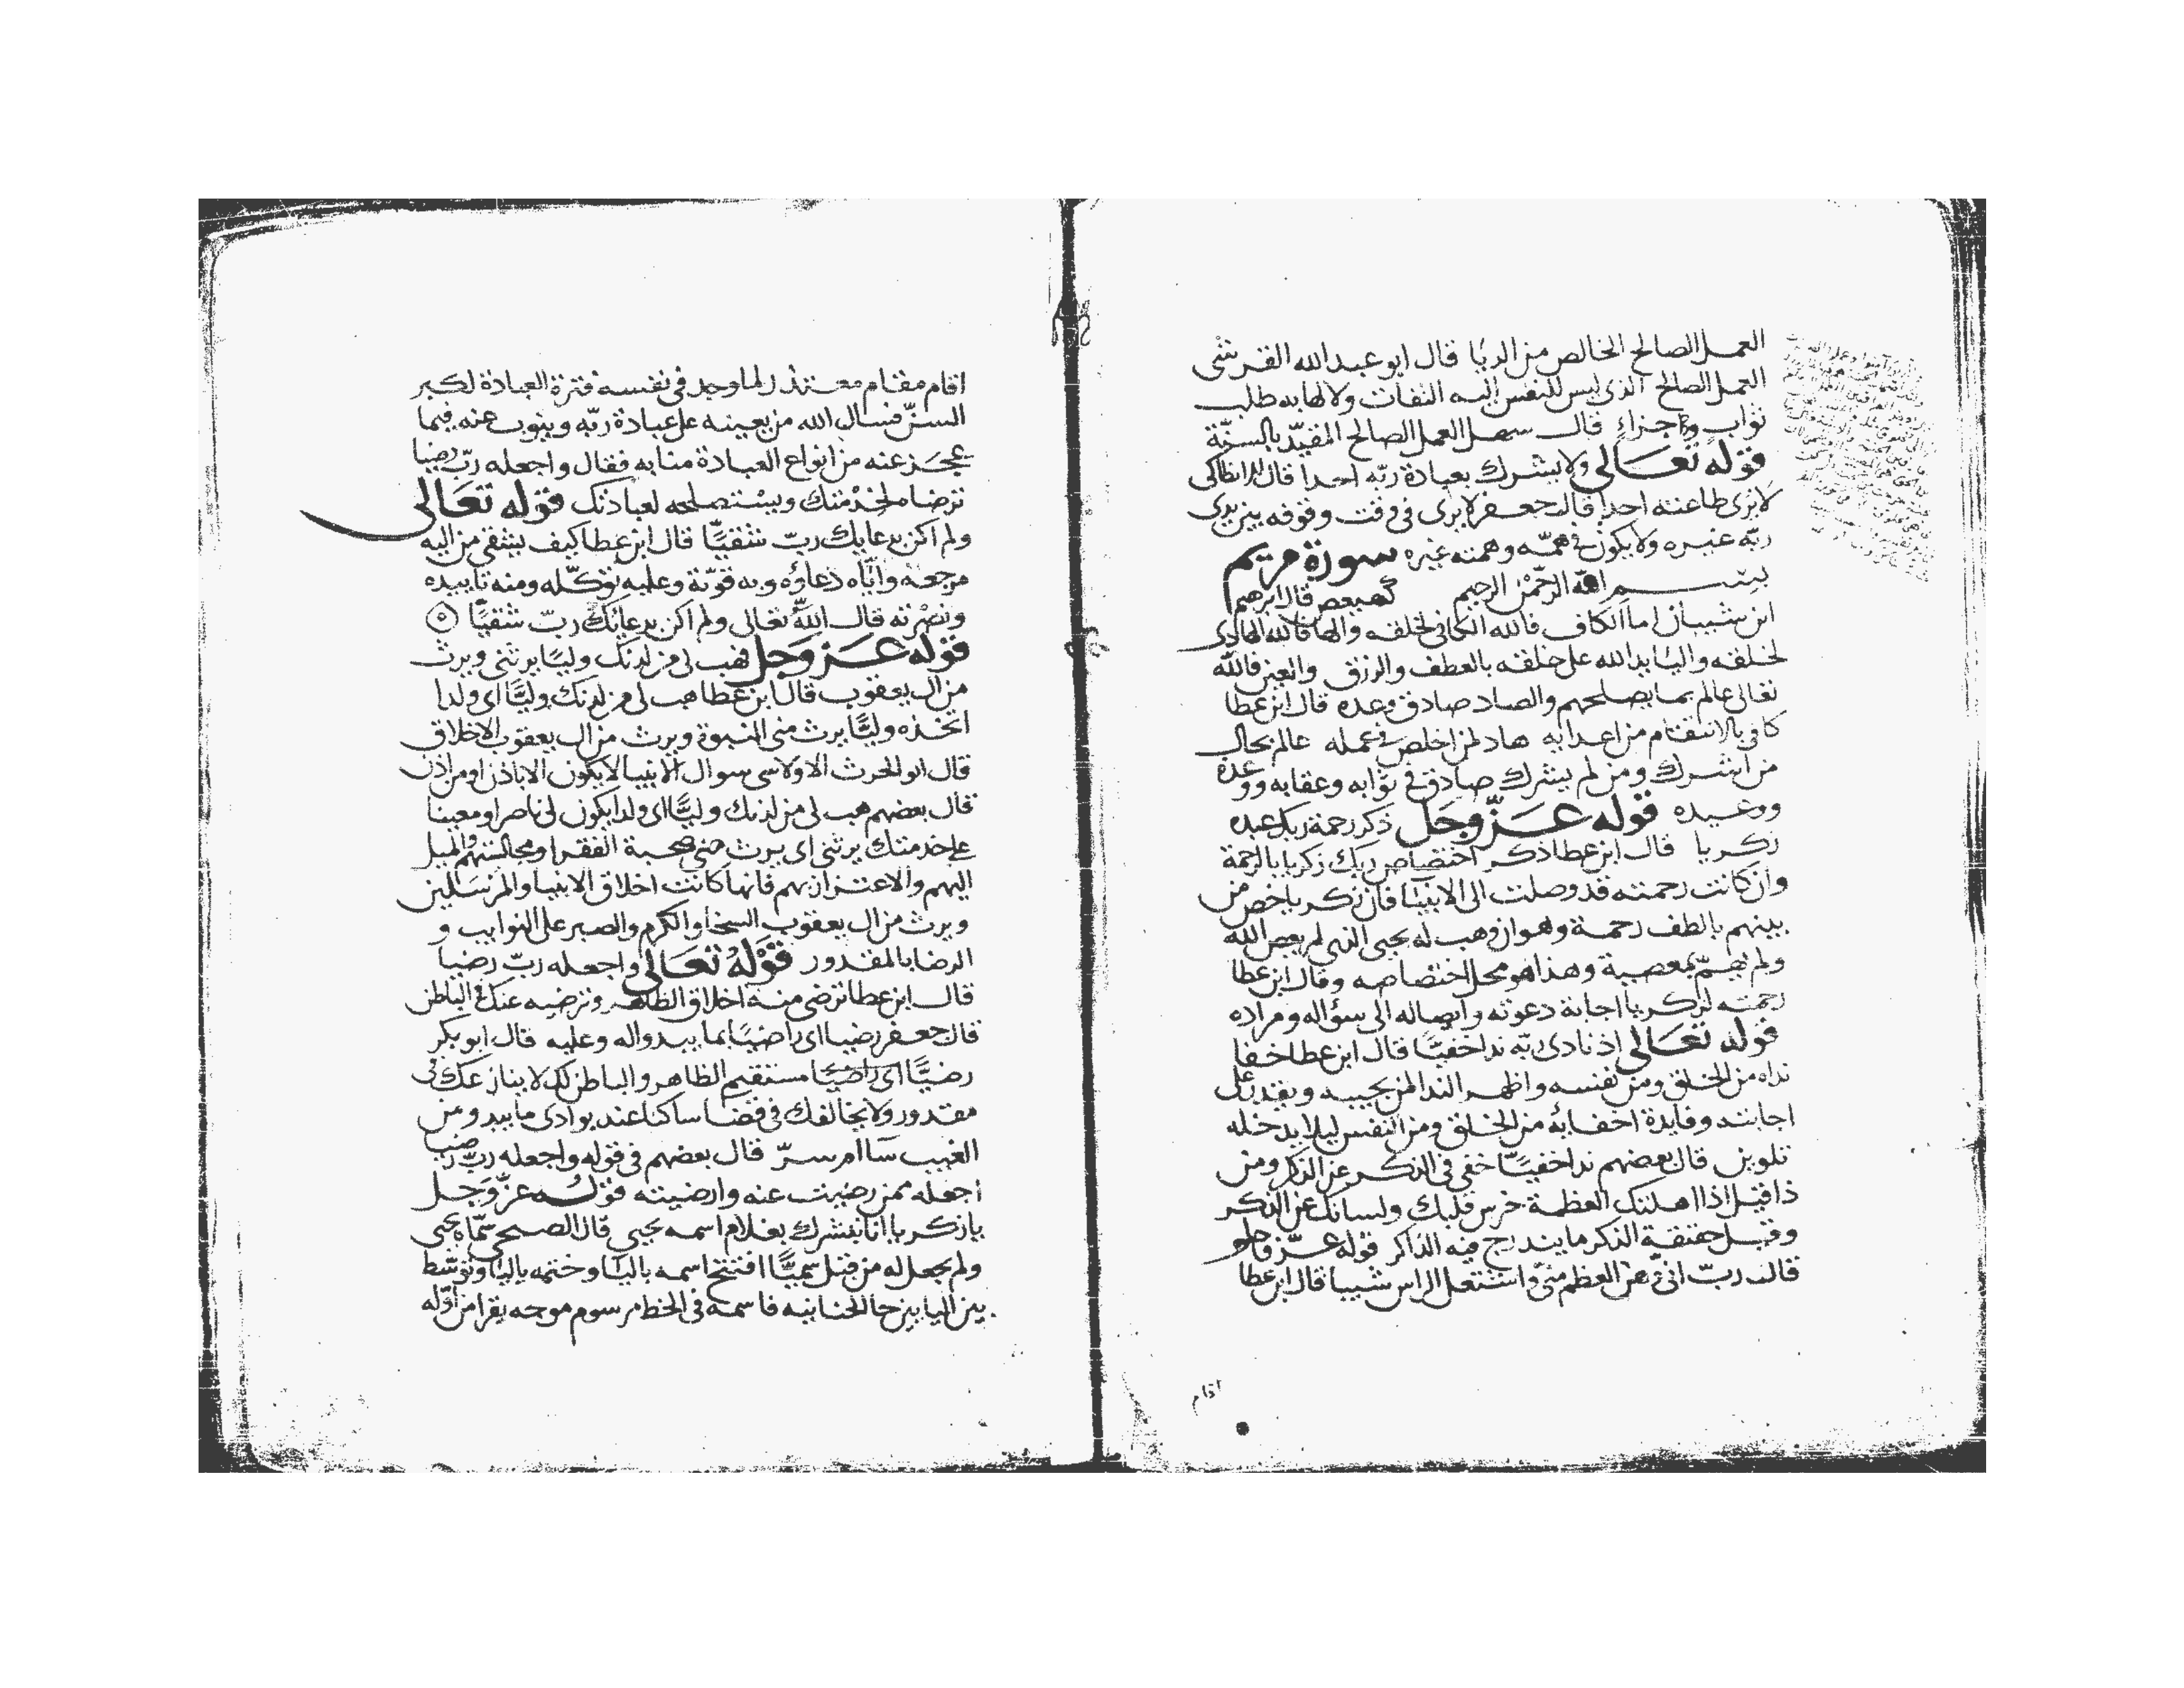 العمل الصالح الخالص من الريا قال ابو عبدالله القرشى
العمل الصالح الذى ليس للنفس اليه التفات ولا لها به طلب
ثواب واجزاء قال سهل العمل الصالح المقيد بالسنة
قوله تعالى ولا يشرك بعبادة ربه احدا قال الانطاكى
لا يرى طاعته احدا قال جعفر لا يرى فى وقت وقوفه بين يدى
ربه غيره ولا يكون فى همه وهمته غيره سورة مريم
بسم الله الرحمن الرحيم كهيعص قال ابرهيم
ابن شيبان اما الكاف فالله الكافى لخلقه والها فالله الهادى
لخلقه واليا يد الله على خلقه بالعطف والرزق والعين فالله
تعالى عالم بما يصلحهم والصاد صادق وعده قال ابن عطا
كافى بالانتقام من اعدايه هاد لمن اخلص فى عمله عالم بحال
من اشرك ومن لم يشرك صادق فى ثوابه وعقابه ووعده
ووعيده قوله عز وجل ذكر رحمة ربك عبده
زكريا قال ابن عطا ذكر اختصاص ربك زكريا بالرحمة
وان كانت رحمته قد وصلت الى الانبيا فان زكريا خص من
بينهم بالطف رحمة وهو ان وهب له يحيى الذى لم يعص الله
ولم يهم بمعصية وهذا هو محل اختصاصه وقال ابن عطا
رحمته لزكريا اجابة دعوته وايصاله الى سؤاله ومراده
قوله تعالى اذ نادى ربه ندا خفيا قال ابن عطا اخفا
نداه من الخلق ومن نفسه واظهر الندا لمن يجيبه ويقدر على
اجابته وفايدة اخفايه من الخلق ومن النفس ليلا يدخله
تلوين قال بعضهم ندا خفيا خفى فى الذكر عن الذكر ومن
ذا قيل اذا اهلتك العظمة خرس قلبك ولسانك عن الذكر
وقيل حقيقة الذكر ما يندرج فيه الذاكر قوله عز وجل
قال رب انى وهن العظم منى واشتعل الراس شيبا قال ابن عطا
اقام
اقام مقام معتذر لما وجد فى نفسه فترة العبادة لكبر
السن فسال الله من يعينه على عبادة ربه وينوب عنه فيما
عجز عنه من انواع العبادة منابه فقال واجعله رب رضيا
ترضاه لخدمتك ويستصلحه لعبادتك قوله تعالى
ولم اكن بدعايك رب شقيا قال ابن عطا كيف يشقى من اليه
مرجعه واياه دعاؤه وبه قوته وعليه توكله ومنه تاييده
ونصرته قال الله تعالى ولم اكن بدعائك رب شقيا
قوله عز وجل فهب لى من لدنك وليا يرثنى ويرث
من ال يعقوب قال ابن عطا هب لى من لدنك وليا اى ولدا
اتخذه وليا يرث منى النبوة ويرث من ال يعقوب الاخلاق
قال ابو الحرث الاولاسى سوال الانبيا لا يكون الا باذن او من اذن
قال بعضهم هب لى من لدنك وليا اى ولدا يكون لى ناصرا ومعينا
على خدمتك يرثنى اى يرث منى صحبة الفقرا ومجالستهم والميل
اليهم والاعتزاز بهم فانها كانت اخلاق الانبيا والمرسلين
ويرث من ال يعقوب السخا والكرم والصبر على النوايب و
الرضا بالمقدور قوله تعالى واجعله رب رضيا
قال ابن عطا ترضى منه اخلاق الظاهر وترضيه عنك فى الباطن
قال جعفر رضيا اى راضيا بما يبدو اله وعليه قال ابو بكر
رضيا اى راضيا مستقيم الظاهر والباطن لك لا ينازعك فى
مقدور ولا يخالفك فى قضا ساكنا عند بوادى ما يبدو من
الغيب سا ام سر قال بعضهم فى قوله واجعله رب رضيا
اجعله ممن رضيت عنه وارضيته قوله عز وجل
يا زكريا انا نبشرك بغلام اسمه يحيى قال الصبحى سماه يحيى
ولم يجعل له من قبل سميا افتتح اسمه باليا وختمه باليا وتوسط
بين اليا ين حا الحنانيه فاسمه فى الخط مرسوم موجه يقرا من اوله